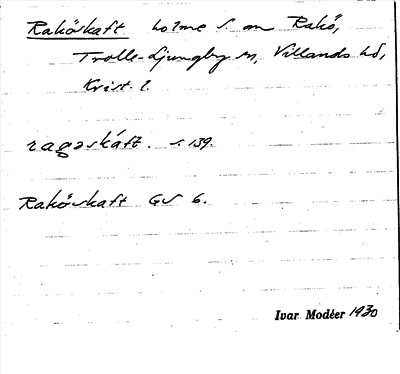 Raköskaft holme S. om Rakö,
Trolle-Ljungby sn, Villands hd,
Krist. l.
ragəskáft. s. 139.
Raköskaft GS 6.
Ivar Modéer 1930